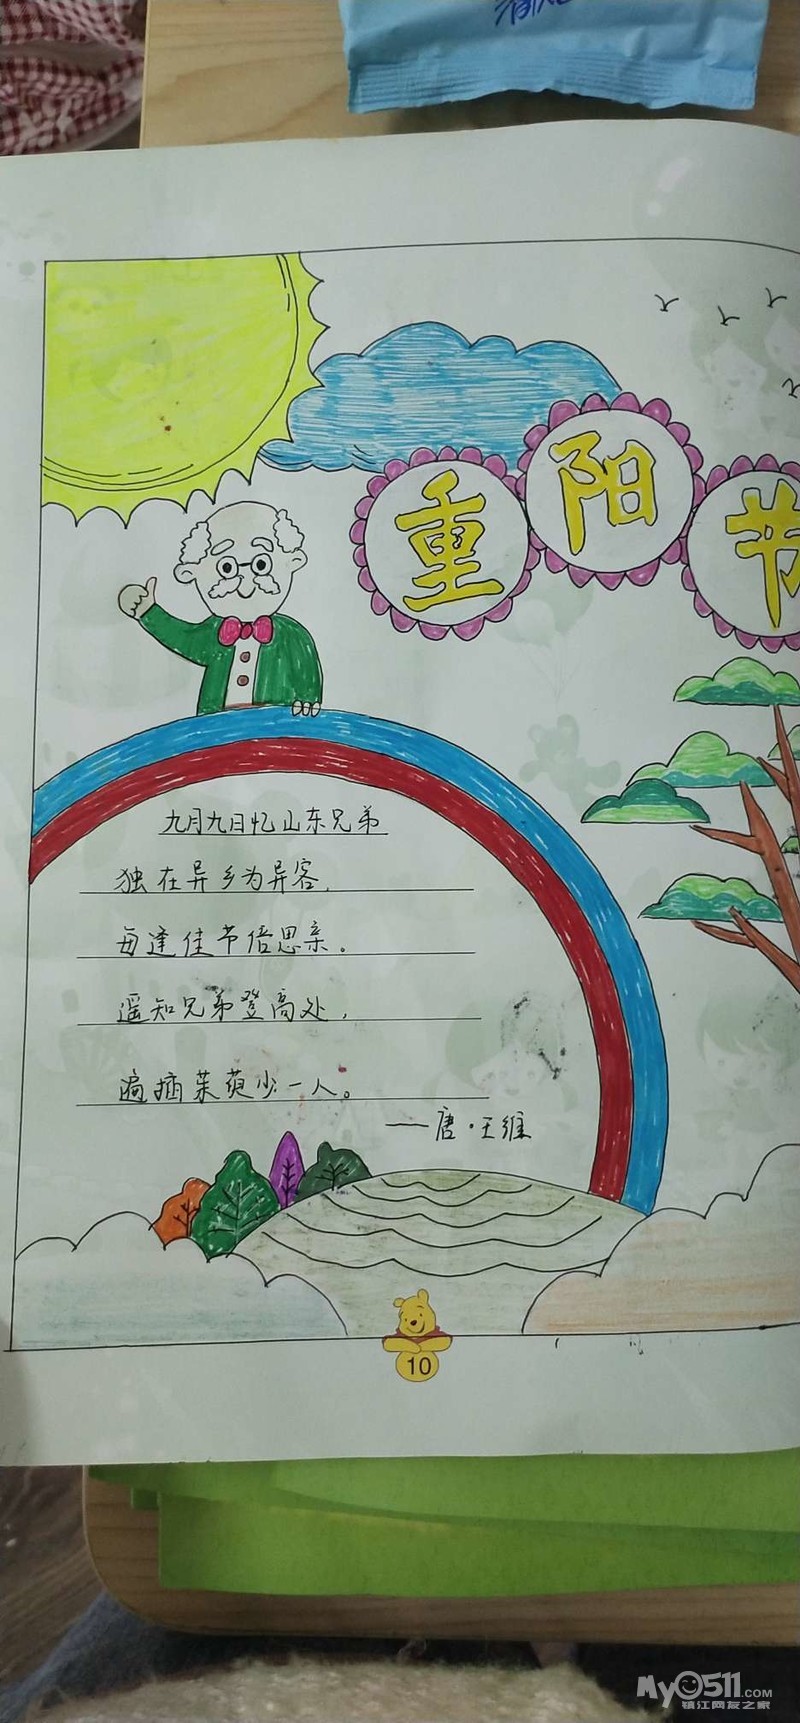 重阳节
九月九日忆山东兄弟
独在异乡为异客，
每逢佳节倍思亲。
遥知兄弟登高处，
遍插茱萸少一人。
——唐·王维
10
My0511.COM
镇江网友之家